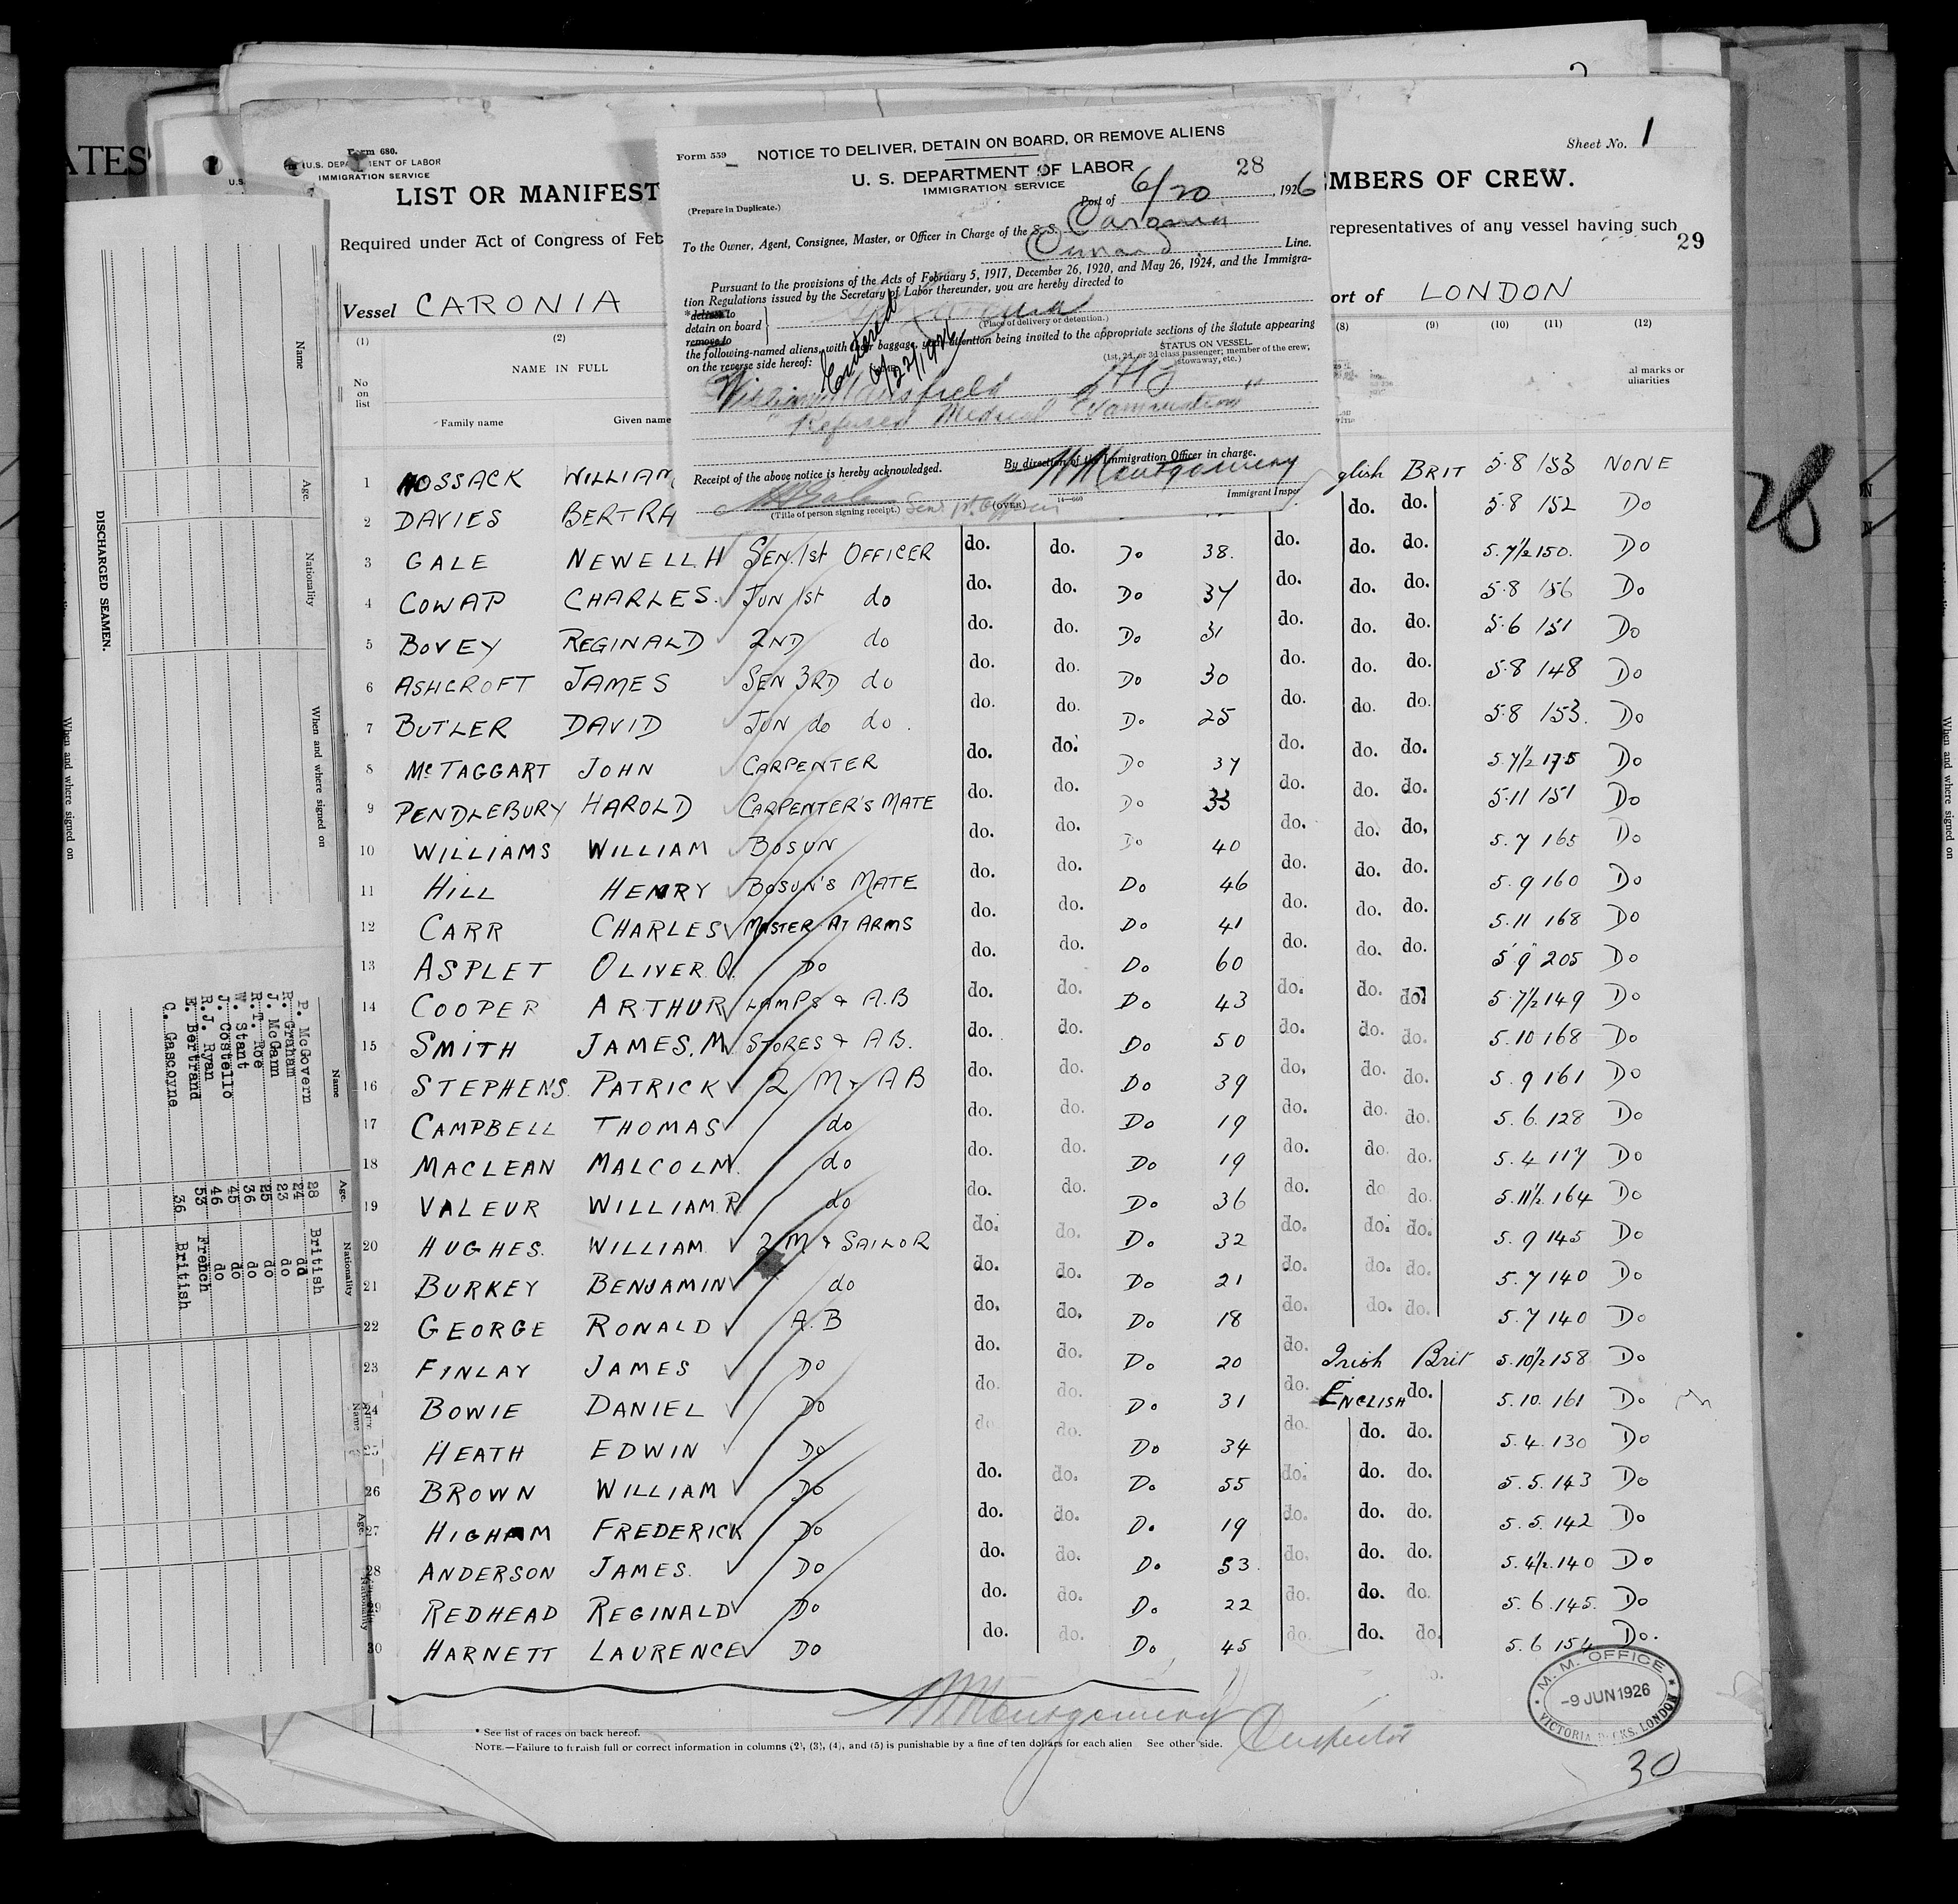 Sheet No. 1
Form 680.
U.S. DEPARTMENT OF LABOR
IMMIGRATION SERVICE
LIST OR MANIFEST
MBERS OF CREW.
Required under Act of Congress of Feb
representatives of any vessel having such
29
Vessel CARONIA
ort of LONDON
(1) (2) (8) (9) (10) (11) (12)
No on list
NAME IN FULL
Family name Given name
al marks or
uliarities
Form 559
NOTICE TO DELIVER, DETAIN ON BOARD, OR REMOVE ALIENS
U. S. DEPARTMENT OF LABOR
28
IMMIGRATION SERVICE
(Prepare in Duplicate.)
Port of 6/20, 1926
To the Owner, Agent, Consignee, Master, or Officer in Charge of the S.S. Caronia
Cunard Line.
Pursuant to the provisions of the Acts of February 5, 1917, December 26, 1920, and May 26, 1924, and the Immigra-
tion Regulations issued by the Secretary of Labor thereunder, you are hereby directed to
*deliver to
detain on board
remove to
(Place of delivery or detention.)
the following-named aliens, with their baggage, your attention being invited to the appropriate sections of the statute appearing
on the reverse side hereof:
STATUS ON VESSEL
(1st, 2d, or 3d class passenger; member of the crew; stowaway, etc.)
Entered
6/22/1926
William
Refused Medical Examination "
Receipt of the above notice is hereby acknowledged.
By direction of the Immigration Officer in charge.
Montgomery
Immigrant Inspec
(Title of person signing receipt.) Sen. 1st Officer
(OVER)
14—660
1 HOSSACK WILLIAM glish BRIT 5.8 153 NONE
2 DAVIES BERTRA do. do. 5.8 152 Do
3 GALE NEWELL.H SEN.1st OFFICER do. do. Do 38. do. do. do. 5.7½ 150. Do
4 COWAP CHARLES. JUN 1st do do. do. Do 37 do. do. do. 5.8 156 Do
5 BOVEY REGINALD 2ND do do. do. Do 31 do. do. do. 5.6 151 Do
6 ASHCROFT JAMES SEN 3RD do do. do. Do 30 do. do. do. 5.8 148 Do
7 BUTLER DAVID JUN do do. do. do. Do 25 do. do. do. 5.8 153. Do
8 McTAGGART JOHN CARPENTER do. do. Do 37 do. do. do. 5.7½ 175 Do
9 PENDLEBURY HAROLD CARPENTER'S MATE do. do. Do 33 do. do. do. 5.11 151 Do
10 WILLIAMS WILLIAM BOSUN do. do. Do 40 do. do. do. 5.7 165 Do
11 HILL HENRY BOSUN'S MATE do. do. Do 46 do. do. do. 5.9 160 Do
12 CARR CHARLES MASTER AT ARMS do. do. Do 41 do. do. do. 5.11 168 Do
13 ASPLET OLIVER.Q. Do do. do. Do 60 do. do. do. 5.9 205 Do
14 COOPER ARTHUR LAMPS & A.B do. do. Do 43 do. do. do. 5.7½ 149 Do
15 SMITH JAMES.M STORES & A.B. do. do. Do 50 do. do. do. 5.10 168 Do
16 STEPHENS. PATRICK 2 M & A B do. do. Do 39 do. do. do. 5.9 161 Do
17 CAMPBELL THOMAS do do. do. Do 19 do. do. do. 5.6. 128 Do
18 MACLEAN MALCOLM. do do. do. Do 19 do. do. do. 5.4 117 Do
19 VALEUR WILLIAM.R do do. do. Do 36 do. do do. 5.11½. 164 Do
20 HUGHES. WILLIAM. 2 M & SAILOR do. do. Do. 32 do. do. do. 5.9 145 Do
21 BURKEY BENJAMIN do do. do. Do 21 do. do. do. 5.7 140 Do
22 GEORGE RONALD A.B do. do. Do 18 do. do. do. 5.7 140 Do
23 FINLAY JAMES Do do. do. Do. 20 do. Irish Brit 5.10½ 158 Do
24 BOWIE DANIEL Do do. do. Do 31 do. ENGLISH do. 5.10. 161 Do
25 HEATH EDWIN Do do. do. Do 34 do. do. do. 5.4. 130 Do
26 BROWN WILLIAM Do do. do. Do. 55 do. do. do. 5.5. 143 Do
27 HIGHAM FREDERICK Do do. do. D. 19 do. do. do. 5.5. 142 Do
28 ANDERSON JAMES. Do do. do. Do. 53. do. do. do. 5.4½. 140 Do
29 REDHEAD REGINALD Do do. do. Do. 22 do. do. do. 5.6. 145. Do
30 HARNETT LAURENCE Do do. do. Do 45 do. do. do. 5.6 154 Do.
28
Montgomery
Inspector
* See list of races on back hereof.
NOTE.—Failure to furnish full or correct information in columns (2), (3), (4), and (5) is punishable by a fine of ten dollars for each alien See other side.
M. M. OFFICE
-9 JUN 1926
VICTORIA DOCKS. LONDON
30
DISCHARGED SEAMEN.
Name Age. Nationality When and where signed on
Name Age. Nationality
P. McGovern 28 British
R. Graham 24 do
J. McGann 23 do
R.T. Roe 25 do
W. Stant 36 do
J. Costello 45 do
R.J. Ryan 46 do
E. Bertrand 53 French
C. Gascoyne 36 British
When and where signed on
ATES